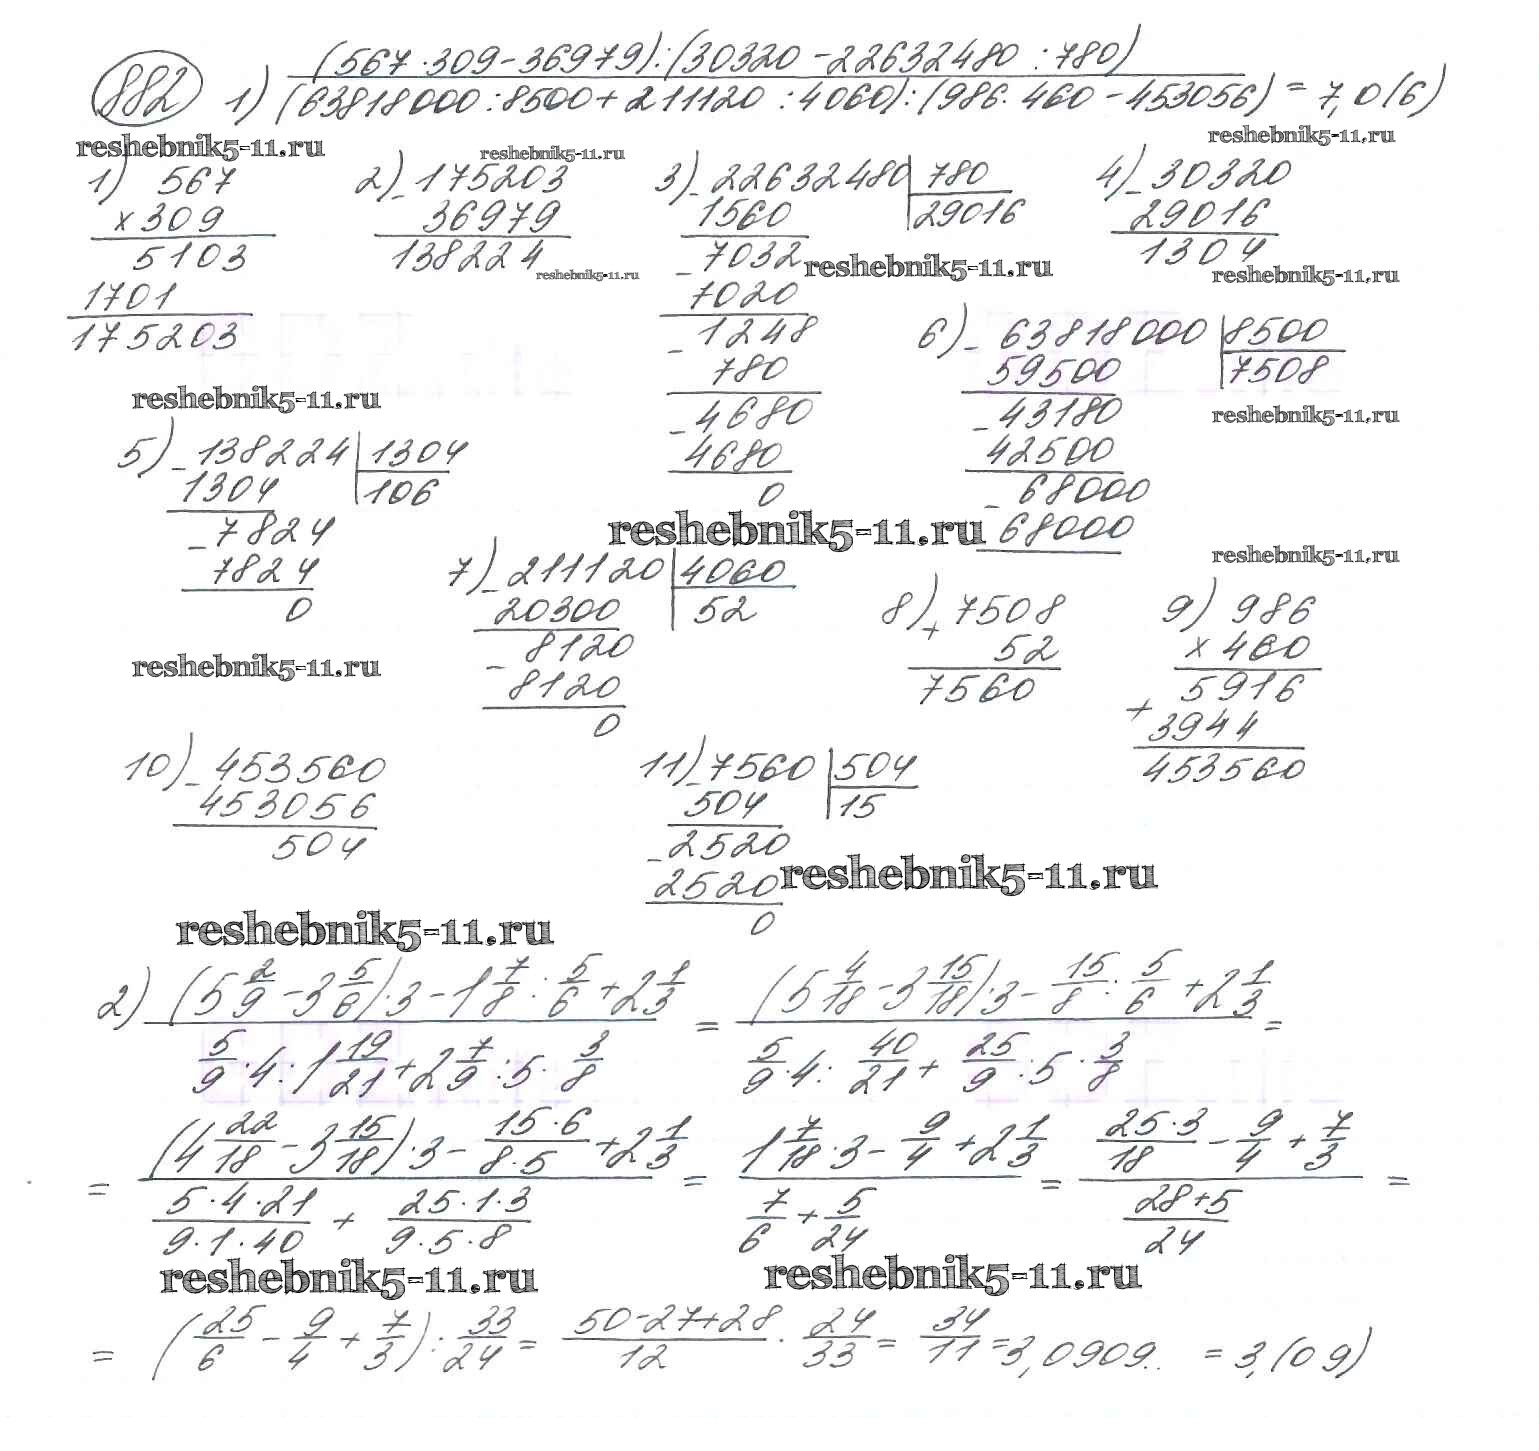 882 1) (567·309-36979):(30320-22632480:780) / (63818000:8500+211120:4060):(986·460-453056) = 7,0(6)
reshebnik5-11.ru reshebnik5-11.ru reshebnik5-11.ru
1) 567
× 309
5103
1701
175203
2) - 175203
36979
138224
reshebnik5-11.ru
3) - 22632480 | 780
1560 | 29016
- 7032
7020
- 1248
780
- 4680
4680
0
reshebnik5-11.ru
4) - 30320
29016
1304
reshebnik5-11.ru
reshebnik5-11.ru
5) - 138224 | 1304
1304 | 106
- 7824
7824
0
6) - 63818000 | 8500
59500 | 7508
- 43180
42500
- 68000
68000
reshebnik5-11.ru
reshebnik5-11.ru
reshebnik5-11.ru
7) - 211120 | 4060
20300 | 52
- 8120
8120
0
8) + 7508
52
7560
9) 986
× 460
5916
+ 3944
453560
reshebnik5-11.ru
10) - 453560
453056
504
11) - 7560 | 504
504 | 15
- 2520
2520
0
reshebnik5-11.ru
reshebnik5-11.ru
2) ((5 2/9 - 3 5/6)·3 - 1 7/8 : 5/6 + 2 1/3) / (5/9·4 : 1 19/21 + 2 7/9 : 5 · 3/8) = ((5 4/18 - 3 15/18)·3 - 15/8 : 5/6 + 2 1/3) / (5/9·4 : 40/21 + 25/9 : 5 · 3/8) =
= ((4 22/18 - 3 15/18)·3 - 15·6/8·5 + 2 1/3) / (5·4·21/9·1·40 + 25·1·3/9·5·8) = (1 7/18·3 - 9/4 + 2 1/3) / (7/6 + 5/24) = (25·3/18 - 9/4 + 7/3) / (28+5/24) =
reshebnik5-11.ru reshebnik5-11.ru
= (25/6 - 9/4 + 7/3) : 33/24 = 50-27+28/12 · 24/33 = 34/11 = 3,0909.. = 3,(09)